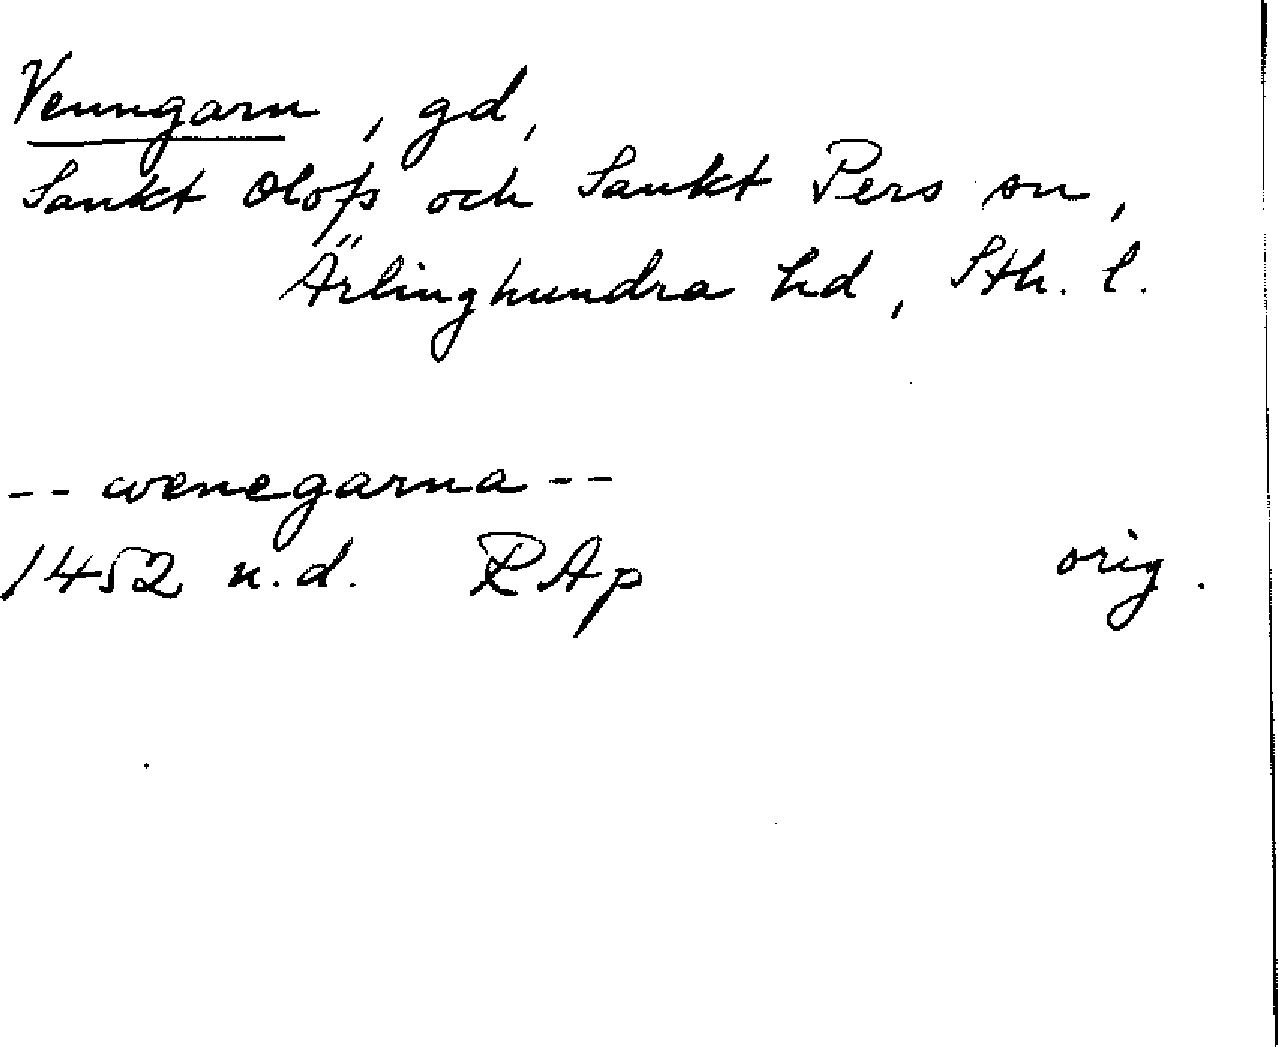 Venngarn, gd,
Sankt Olofs och Sankt Pers sn,
Ärlinghundra hd, Sth. l.
-- wenegarna --
1452 n.d. RAp orig.